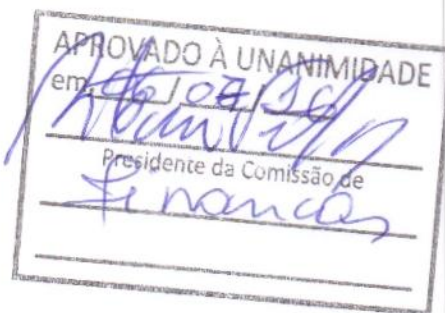 APROVADO À UNANIMIDADE
em, / 04 /
Presidente da Comissão de
Finanças